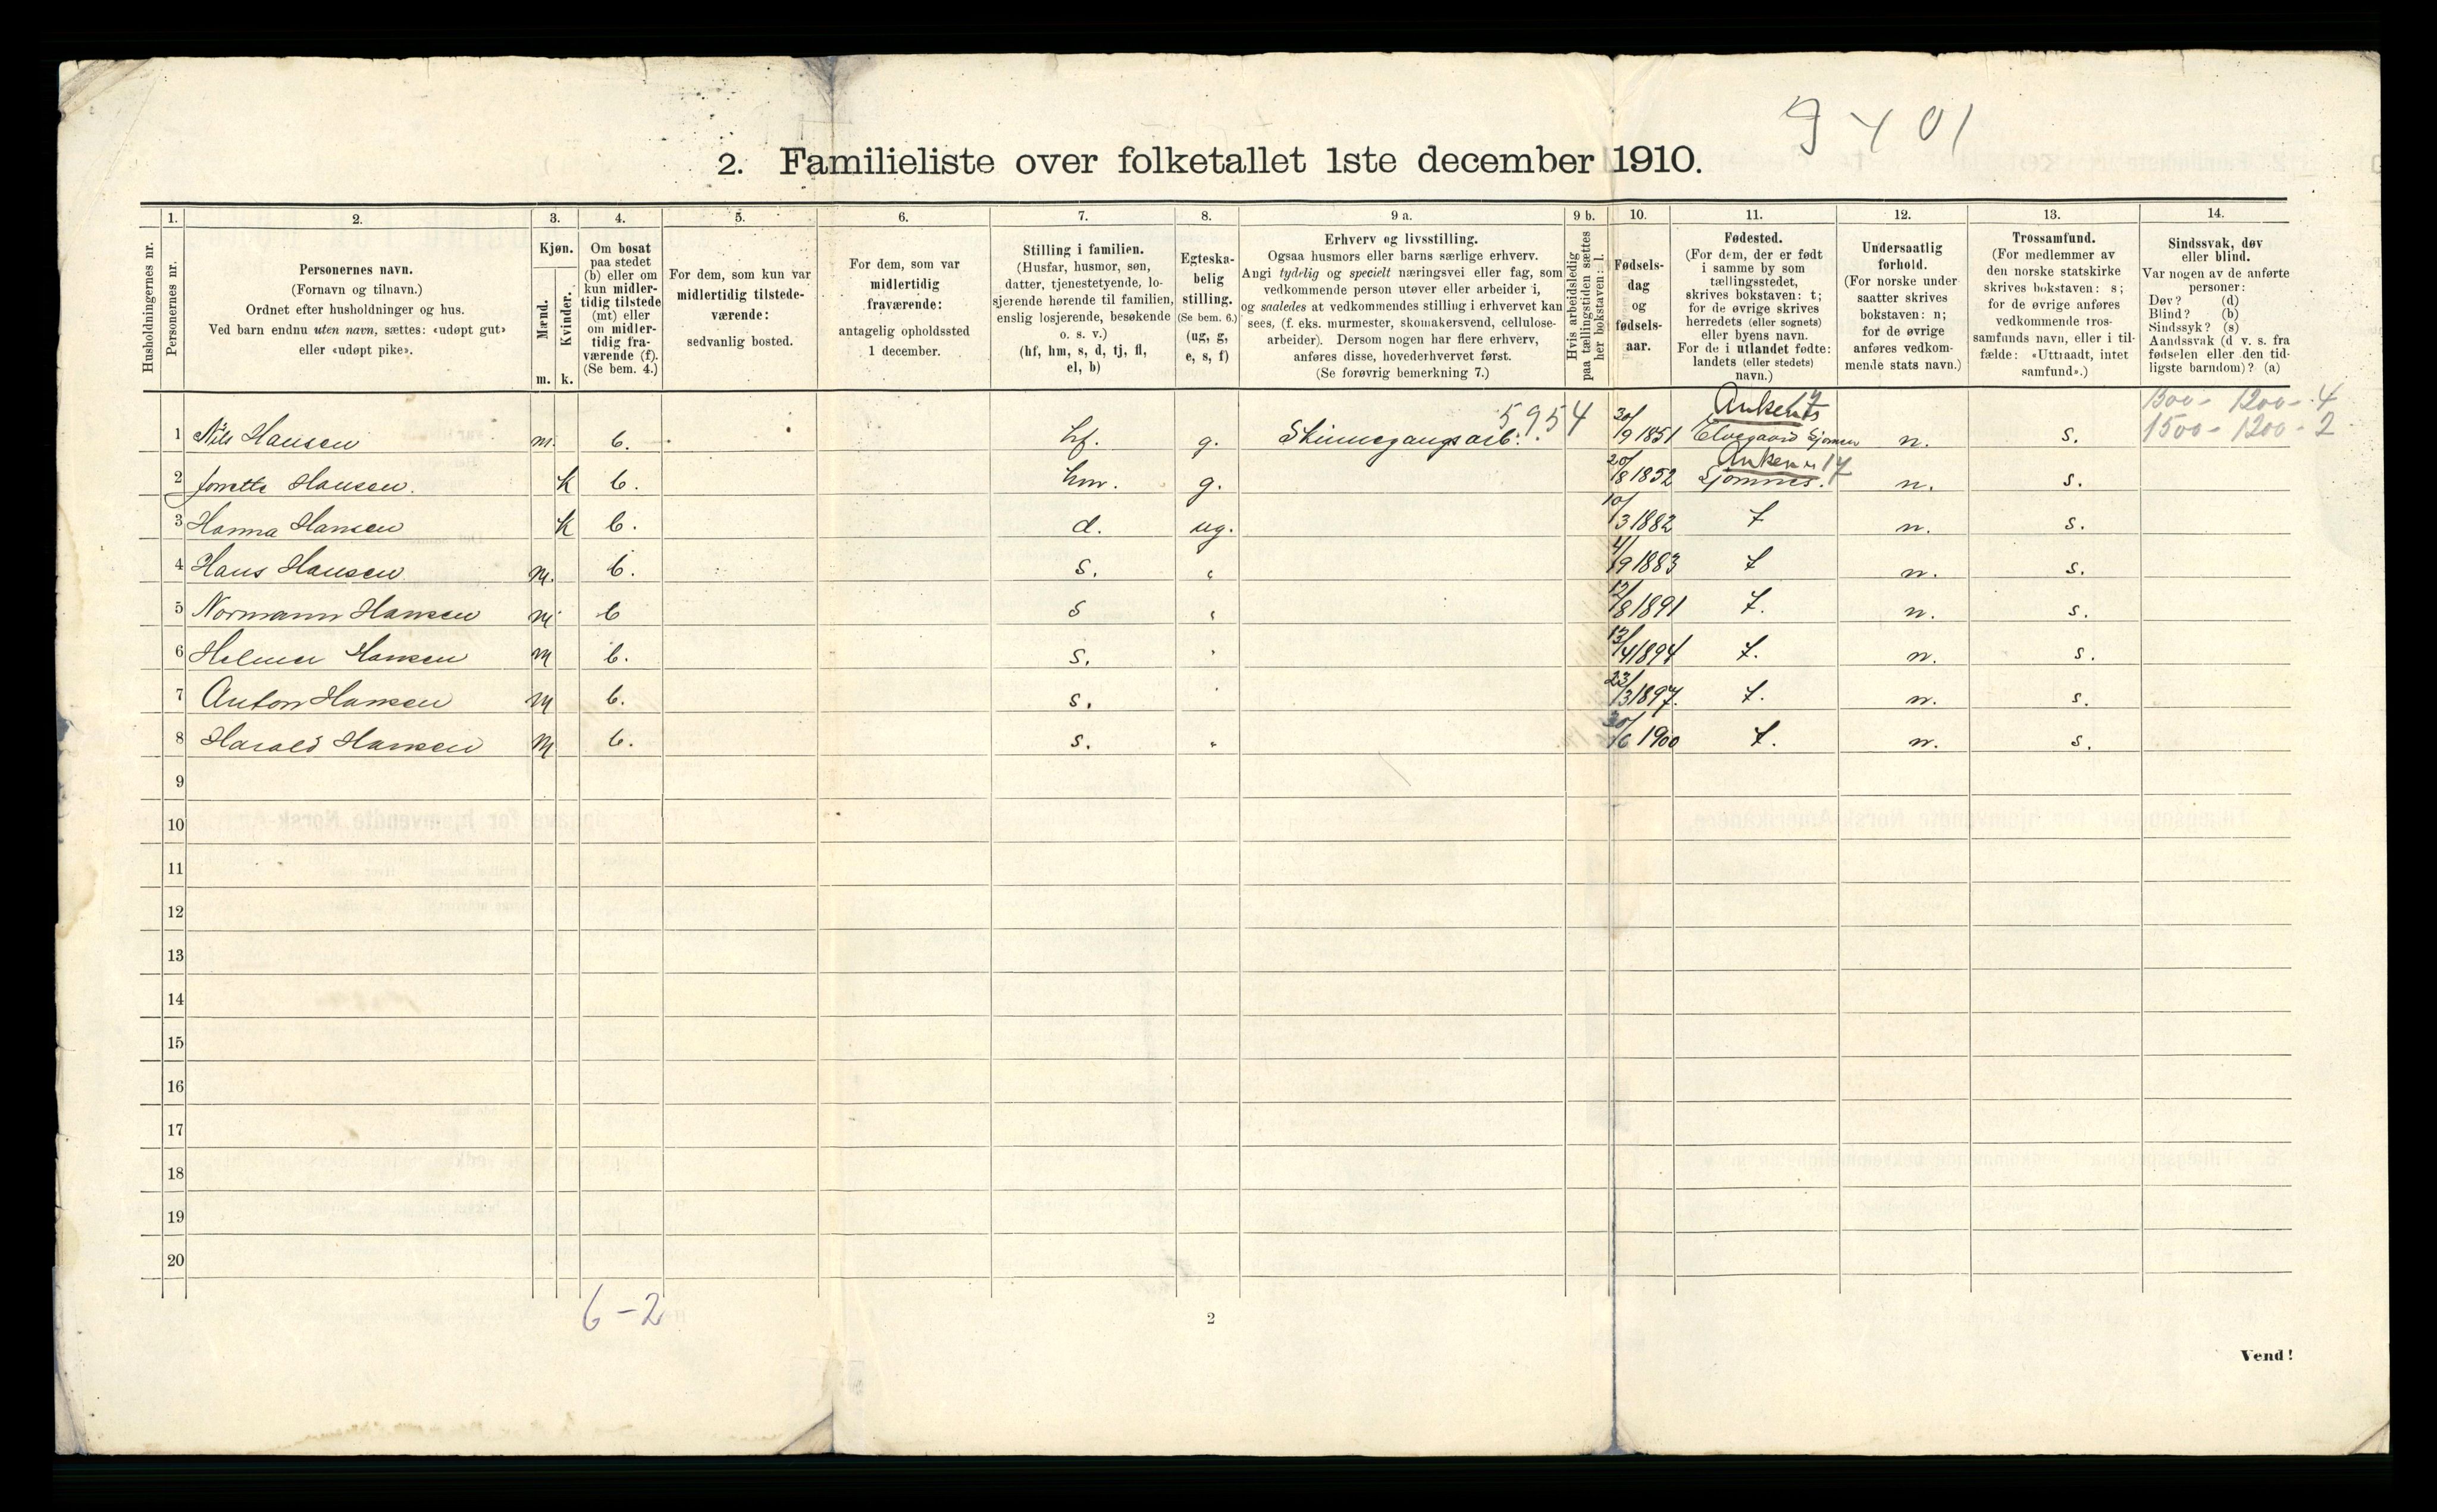 9401
2. Familieliste over folketallet 1ste december 1910.
Husholdningernes nr.
1. Personernes nr.
2. Personernes navn.
(Fornavn og tilnavn.)
Ordnet efter husholdninger og hus.
Ved barn endnu uten navn, sættes: «udøpt gut»
eller «udøpt pike».
3. Kjøn.
Mænd. m.
Kvinder. k.
4. Om bosat
paa stedet
(b) eller om
kun midler-
tidig tilstede
(mt) eller
om midler-
tidig fra-
værende (f).
(Se bem. 4.)
5. For dem, som kun var
midlertidig tilstede-
værende:
sedvanlig bosted.
6. For dem, som var
midlertidig
fraværende:
antagelig opholdssted
1 december.
7. Stilling i familien.
(Husfar, husmor, søn,
datter, tjenestetyende, lo-
sjerende hørende til familien,
enslig losjerende, besøkende
o. s. v.)
(hf, hm, s, d, tj, fl,
el, b)
8. Egteska-
belig
stilling.
(Se bem. 6.)
(ug, g,
e, s, f)
9 a. Erhverv og livsstilling.
Ogsaa husmors eller barns særlige erhverv.
Angi tydelig og specielt næringsvei eller fag, som
vedkommende person utøver eller arbeider i,
og saaledes at vedkommendes stilling i erhvervet kan
sees, (f. eks. murmester, skomakersvend, cellulose-
arbeider). Dersom nogen har flere erhverv,
anføres disse, hovederhvervet først.
(Se forøvrig bemerkning 7.)
9 b. Hvis arbeidsledig
paa tællingstiden sættes
her bokstaven: l.
10. Fødsels-
dag
og
fødsels-
aar.
11. Fødested.
(For dem, der er født
i samme by som
tællingsstedet,
skrives bokstaven: t;
for de øvrige skrives
herredets (eller sognets)
eller byens navn.
For de i utlandet fødte:
landets (eller stedets)
navn.)
12. Undersaatlig
forhold.
(For norske under
saatter skrives
bokstaven: n;
for de øvrige
anføres vedkom-
mende stats navn.)
13. Trossamfund.
(For medlemmer av
den norske statskirke
skrives bokstaven: s;
for de øvrige anføres
vedkommende tros-
samfunds navn, eller i til-
fælde: «Uttraadt, intet
samfund».)
14. Sindssvak, døv
eller blind.
Var nogen av de anførte
personer:
Døv? (d)
Blind? (b)
Sindssyk? (s)
Aandssvak (d v. s. fra
fødselen eller den tid-
ligste barndom)? (a)
5954 Ankenes 17 1300 - 1200 - 4
1 Nils Hansen m. b. hf. g. Skinnegangsarb. 30/9 1851 Elvegaard Sjomen n. s. 1500 - 1200 - 2
Ankenes 17
2 Jonette Hansen. k b. hm. g. 20/8 1852 Sjomnes. n. s.
3 Hanna Hansen k b. d. ug. 10/3 1882 t n. s.
4 Hans Hansen m. b. s. " 4/9 1883 t n. s.
5 Normann Hansen m. b s " 12/8 1891 t. n. s.
6 Helmer Hansen m b. s. " 13/4 1894 t. n. s.
7 Anton Hansen m b. s. " 23/3 1897. t. n. s.
8 Harald Hansen m b. s. " 30/6 1900 t. n. s.
9
10
11
12
13
14
15
16
17
18
19
20
6-2
2
Vend!